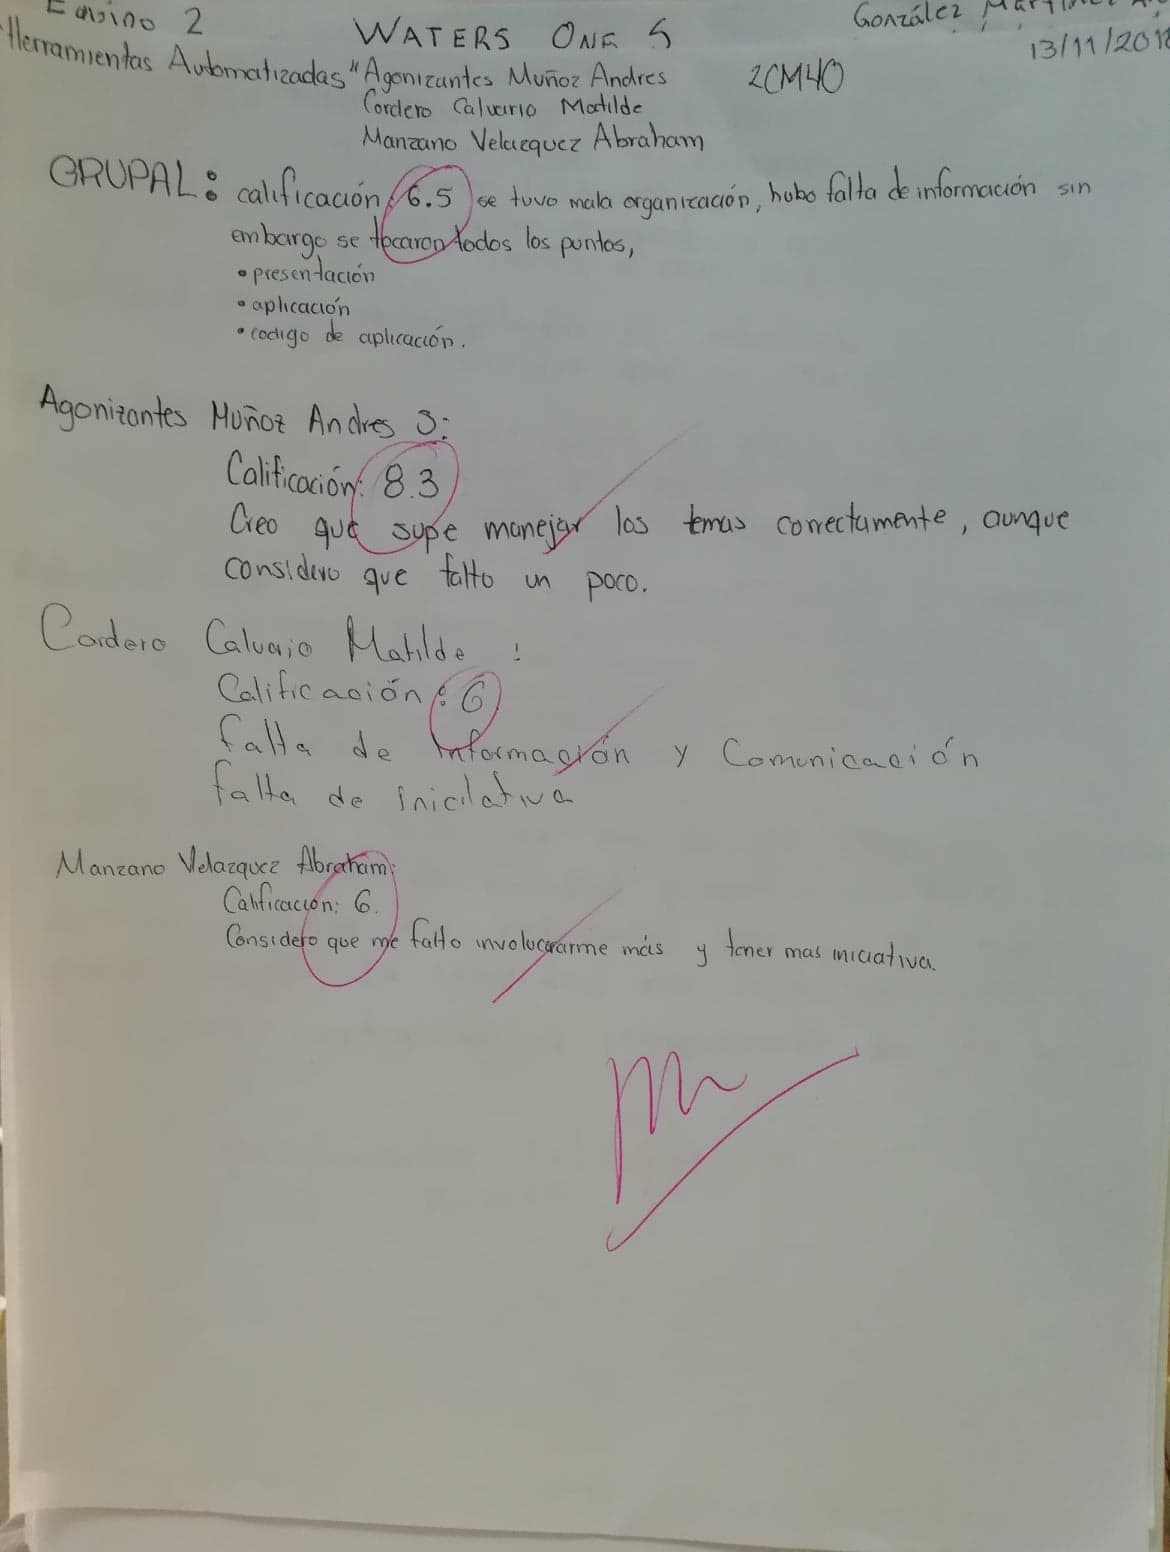 Equipo 2
González Martínez
WATERS ONE S
13/11/2018
Herramientas Automatizadas "Agonizantes Muñoz Andres
2CM40
Cordero Calvario Matilde
Manzano Velazquez Abraham
GRUPAL: calificación: 6.5 se tuvo mala organización, hubo falta de información sin
embargo se tocaron todos los puntos,
• presentación
• aplicación
• codigo de aplicación.
Agonizantes Muñoz Andres S:
Calificación: 8.3
Creo que supe manejar los temas correctamente, aunque
considero que falto un poco.
Cordero Calvario Matilde :
Calificación: 6
falta de Información y Comunicación
falta de inicilativa
Manzano Velazquez Abraham:
Calificación: 6.
Considero que me falto involucrarme más y tener mas iniciativa.